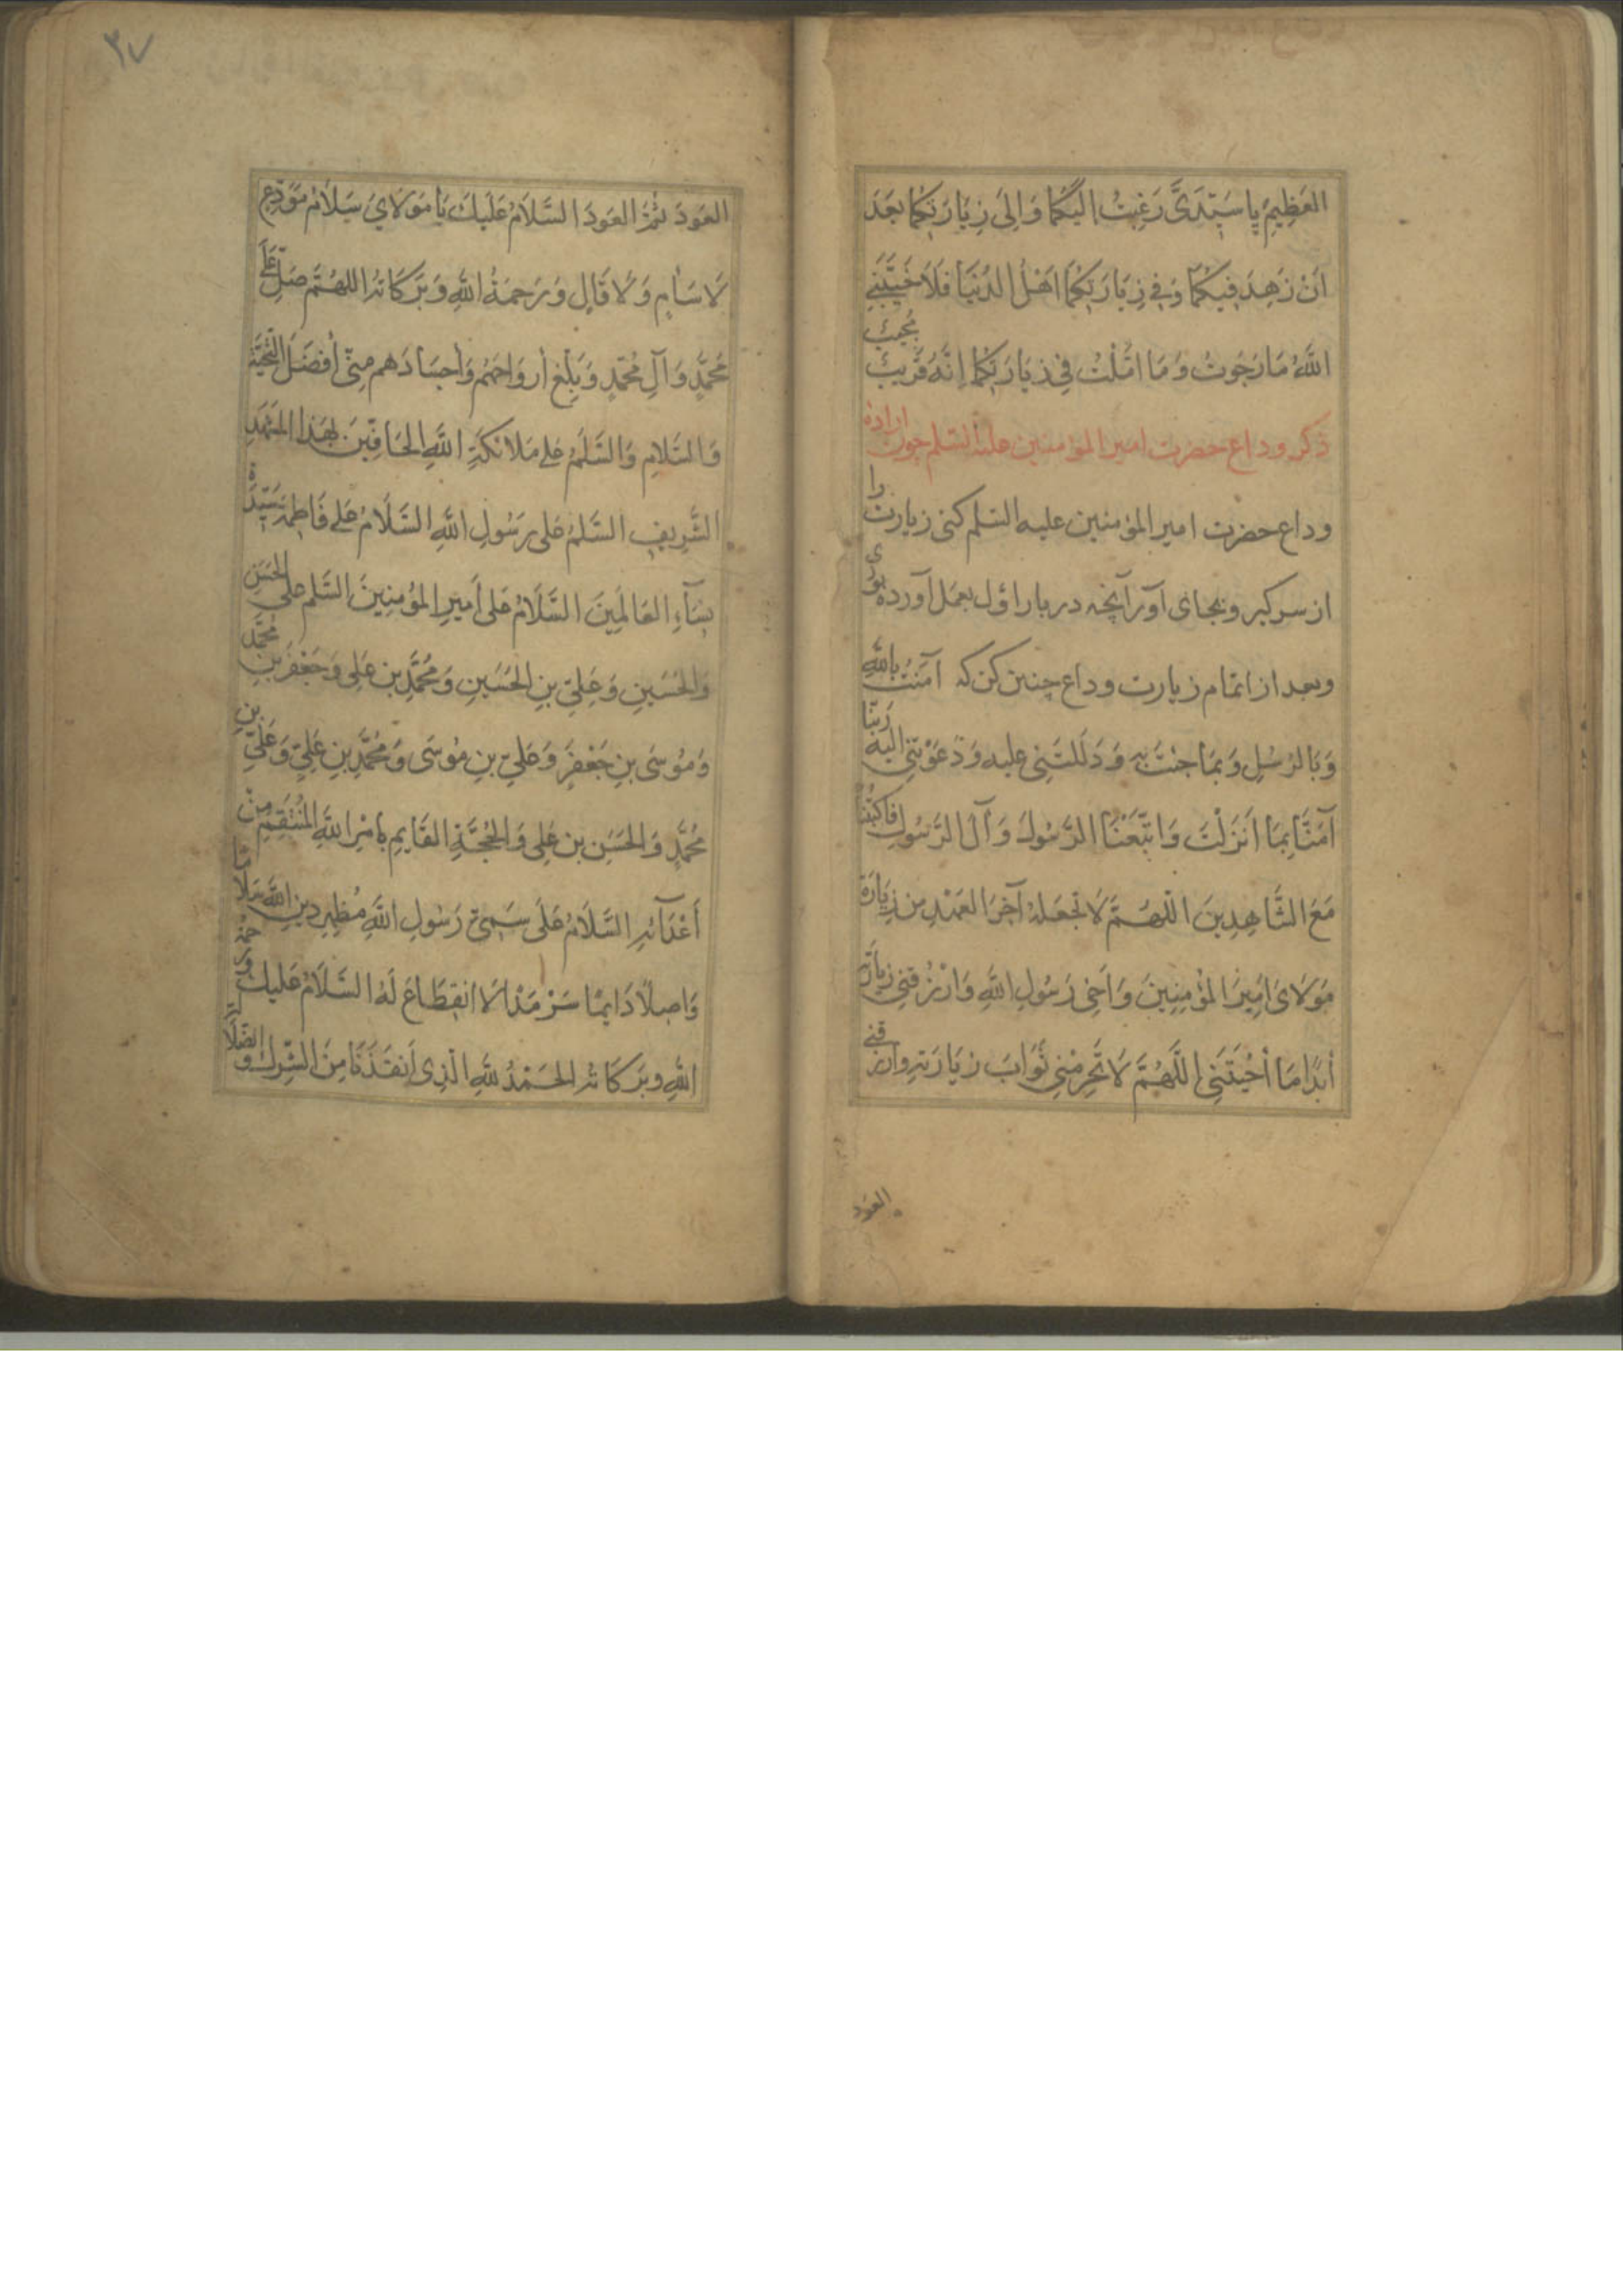 العَظِيمِ يا سَيِّدَيَّ رَغِبتُ اِلَيكُما وَاِلىٰ زِيارَتِكُما بَعدَ
اَنْ زَهِدَ فيكُمَا وَفي زِيَارَتِكُمَا اَهْلُ الدُنيَا فَلَا خَيَّبَنِي
اللّٰهُ مَا رَجَوتُ وَمَا امَّلْتُ فِي زِيَارَتِكُما اِنَّهُ قَرِيبٌ مُجيبٌ
ذكر وداع حضرت امير المؤمنين عليه السلم چون اراده
وداع حضرت امير المؤمنين عليه السلم كنى زيارت را
از سر كير وبجاى آور آنچه در بار اوّل بعمل آورده بودى
وبعد از اتمام زيارت وداع چنين كن كه آمَنتُ بِاللّٰهِ
وَبَالرُسُلِ وَبمَا جئتَ بِهِ وَدَلَلتَنِى عليه وَدَعَوْتَنِي اليه رَبَّنا
آمَنَّا بِمَا اَنزَلْتَ وَاتَّبَعْنَا الرَّسُولَ وَآلَ الرَّسُولِ فَاكتُبْنَا
مَعَ الشَّاهِدِينَ اللّهُمَّ لَا تَجعَلهُ آخِرَ العَهْدِ من زِيَارَة
مَولَاىَ اَمِيرِ المُؤمِنِينَ وَاَخِى رَسُولِ اللّٰهِ وَارْزُقنِي زِيَارَتَه
أَبَدًا مَا أَحْيَيتَنِى اللّٰهُمَّ لَا تَحْرِمْنِي ثَوَابَ زِيَارَتِهِ وارزقنِي
العَوْد
٣٧
العَودَ ثُمَّ العَودَ السَّلَامُ عَلَيكَ يَا مَولَايَ سَلَامُ مُوَدِّعٍ
لَا سَأمٍ وَلَا قَالٍ وَرَحمَةُ اللّٰهِ وَبَرَكَاتُه اللهُمَّ صَلّ عَلَى
مُحَمَّدٍ وَآلِ مُحَمَّدٍ وَبَلِّغ أروَاحَهُم وَأجسَادَهم مِنّى أَفضَلَ التَّحِيَّة
وَالسَّلامِ وَالسَّلَمُ عَلى مَلَائكَةِ اللّٰهِ الحَافِّينَ بِهَذا المَشهَدِ
الشَّرِيفِ السَّلَمُ عَلى رَسُولِ اللّٰهِ السَّلَامُ عَلى فَاطِمَة سَيِّدَة
نِسَآءِ العَالَمِينَ السَّلَامُ عَلى أَمِيرِ المُؤمِنِينَ السَّلم عَلى الحَسَنِ
وَالحُسَينِ وَعَلِيّ بنِ الحُسَينِ وَمُحَمَّدِ بن عَلِي وَجَعْفَر بنِ مُحَمَّد
وَمُوسَى بنِ جَعْفَرٍ وَعَلِيّ بنِ مُوسَى وَمُحَمَّدِ بنِ عَلِيّ وَعَلِيّ بن
مُحَمَّدٍ وَالحَسَنِ بن عَلِى وَالحُجَّةِ القَايِمِ بِأمْرِ اللّٰهِ المُنتَقِمِ مِنْ
أَعْدَآئِهِ السَّلَامُ عَلَى سَمِيّ رَسُولِ اللّٰهِ مُظهِرِ دِينِ اللّٰه سَلَامًا
وَاصِلًا دَايِمًا سَرْمَدًا لَا انقِطَاعَ لَهُ السَّلَامُ عَلَيكَ وَرَحمَة
اللّٰهِ وبَرَكَاتُه الحَمْدُ لِلّٰهِ الَّذِى أَنقَذَنَا مِنَ الشِّركِ و الضَلَالَة